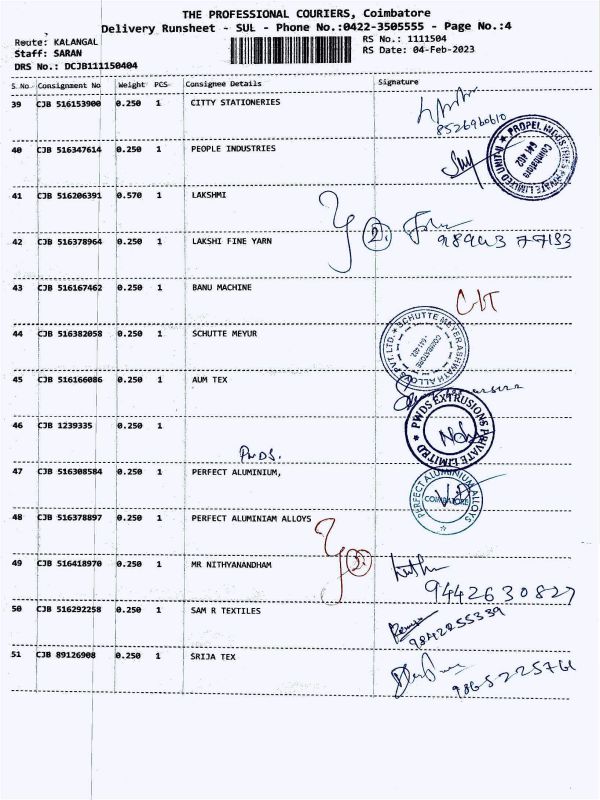 THE PROFESSIONAL COURIERS, Coimbatore
Delivery Runsheet - SUL - Phone No.:0422-3505555 - Page No.:4
Route: KALANGAL RS No.: 1111504
Staff: SARAN RS Date: 04-Feb-2023
DRS No.: DCJB111150404
S.No Consignment No Weight PCS Consignee Details Signature
39 CJB 516153900 0.250 1 CITTY STATIONERIES
8526960610
40 CJB 516347614 0.250 1 PEOPLE INDUSTRIES
PROPEL INDUSTRIES PRIVATE LIMITED
Coimbatore
641 402
41 CJB 516206391 0.570 1 LAKSHMI
2.
42 CJB 516378964 0.250 1 LAKSHI FINE YARN
43 CJB 516167462 0.250 1 BANU MACHINE
44 CJB 516382058 0.250 1 SCHUTTE MEYUR
SCHUTTE MEYER ASHWATH ALLOYS PVT. LTD.
COIMBATORE
641 402.
45 CJB 516166086 0.250 1 AUM TEX
46 CJB 1239335 0.250 1
PWDS EXTRUSIONS PRIVATE LIMITED
PWDS.
47 CJB 516308584 0.250 1 PERFECT ALUMINIUM,
PERFECT ALUMINIUM ALLOYS
COIMBATORE
48 CJB 516378897 0.250 1 PERFECT ALUMINIAM ALLOYS
49 CJB 516418970 0.250 1 MR NITHYANANDHAM
9442630827
50 CJB 516292258 0.250 1 SAM R TEXTILES
9842255339
51 CJB 89126908 0.250 1 SRIJA TEX